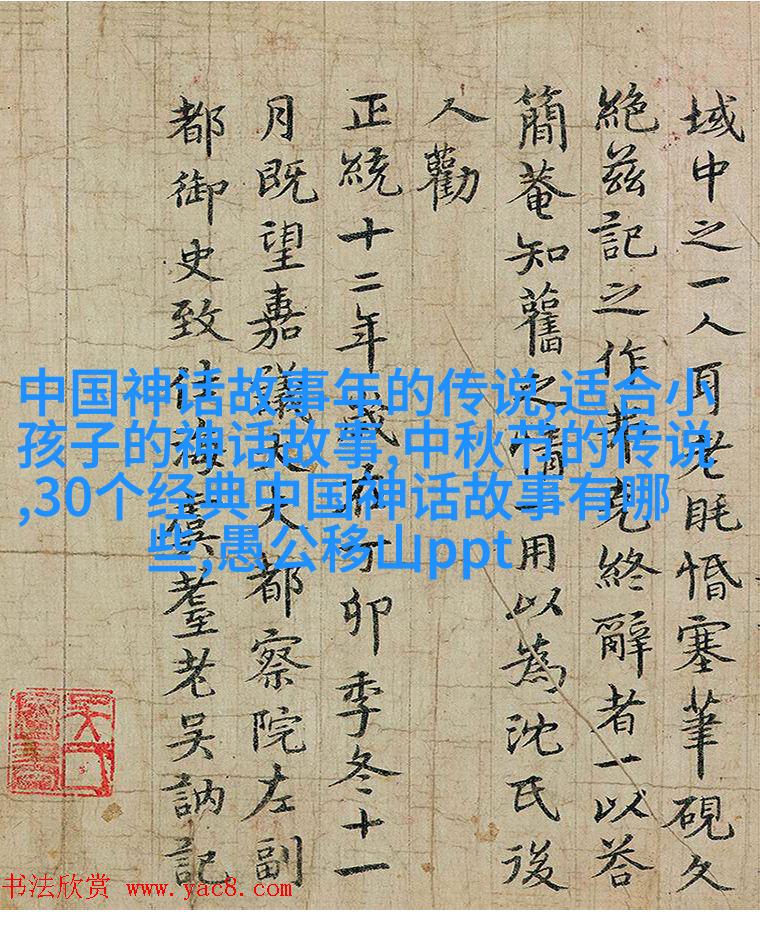 域中之一人耳老眊惛塞筆硯久
絶兹記之作克終辭者一以荅
簡菴知舊之情一用以為沈氏後
人勸
正統十二年歲在丁卯季冬十一
月既望嘉議大夫都察院左副
都御史致仕海虞耋老吳訥記
中国神话故事年的传说,适合小
孩子的神话故事,中秋节的传说
,30个经典中国神话故事有哪
些,愚公移山ppt
书法欣赏 www.yac8.com